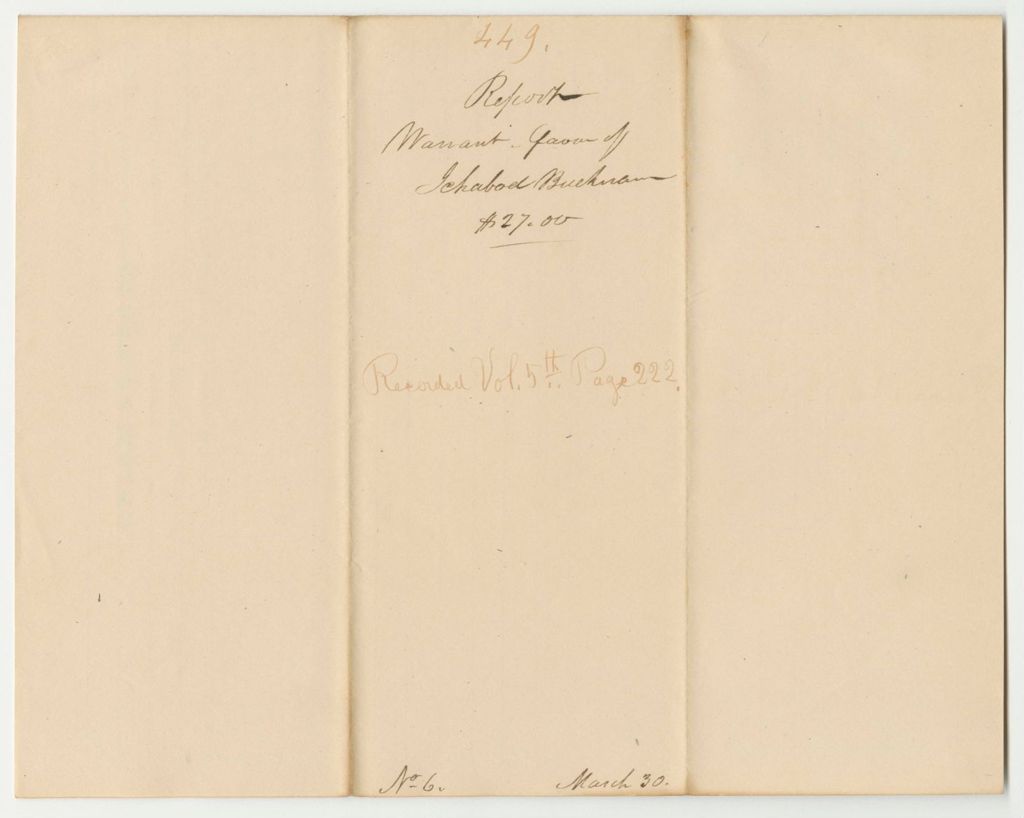 449.
Report
Warrant. favor of
Ichabod Bucknam
$27.00
Recorded Vol. 5th. Page 222.
No 6. March 30.